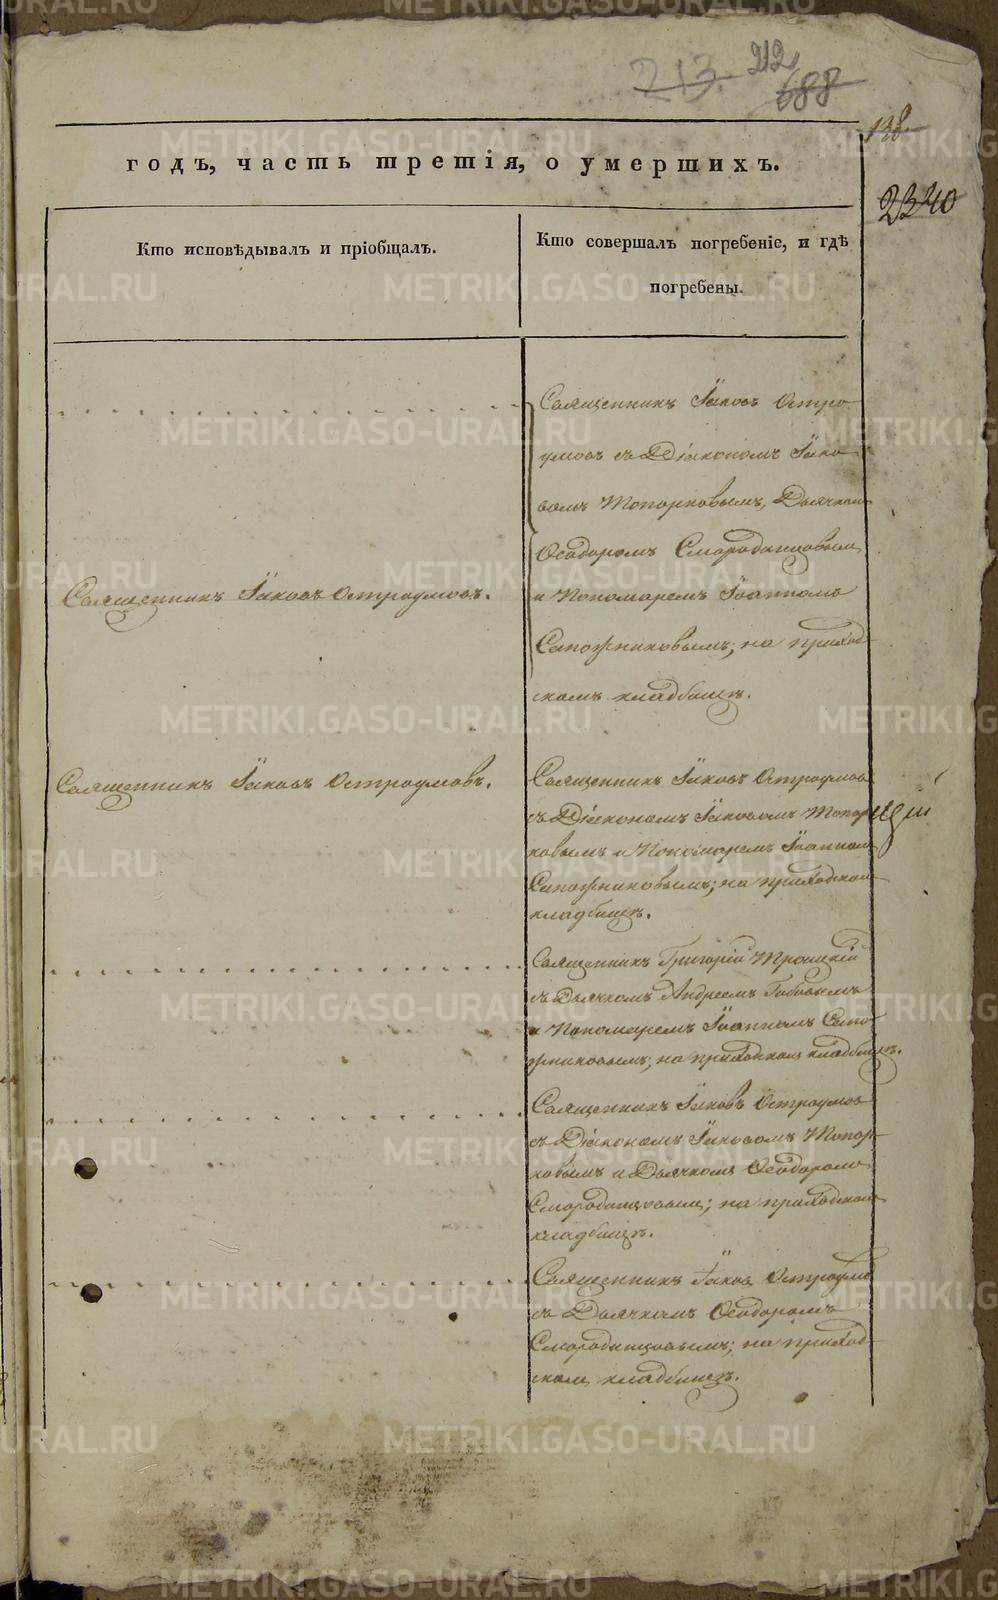 213
212
688
138
2340
годъ, часть третія, о умершихъ.
Кто исповѣдывалъ и пріобщалъ.
Кто совершалъ погребеніе, и гдѣ
погребены.
Священникъ Іаковъ Остро-
умовъ съ Діакономъ Іако-
вомъ Топорковымъ, Дьячкомъ
Ѳеодоромъ Смородинцовымъ
Священникъ Іаковъ Остроумовъ.
и Пономаремъ Іоанномъ
Сапожниковымъ; на приход-
скомъ кладбищѣ.
Священникъ Іаковъ Остроумовъ.
Священникъ Іаковъ Остроумовъ
съ Діакономъ Іаковомъ Топор-
ковымъ и Пономаремъ Іоанномъ
Сапожниковымъ; на приходскомъ
кладбищѣ.
Священникъ Григорій Троицкій
съ Дьячкомъ Андреемъ
и Пономаремъ Іоанномъ Сапо-
жниковымъ; на приходскомъ кладбищѣ.
Священникъ Іаковъ Остроумовъ
съ Діакономъ Іаковомъ Топор-
ковымъ и Дьячкомъ Ѳеодоромъ
Смородинцовымъ; на приходскомъ
кладбищѣ.
Священникъ Іаковъ Остроумовъ
съ Дьячкомъ Ѳеодоромъ
Смородинцовымъ; на приход-
скомъ кладбищѣ.
METRIKI.GASO-URAL.RU